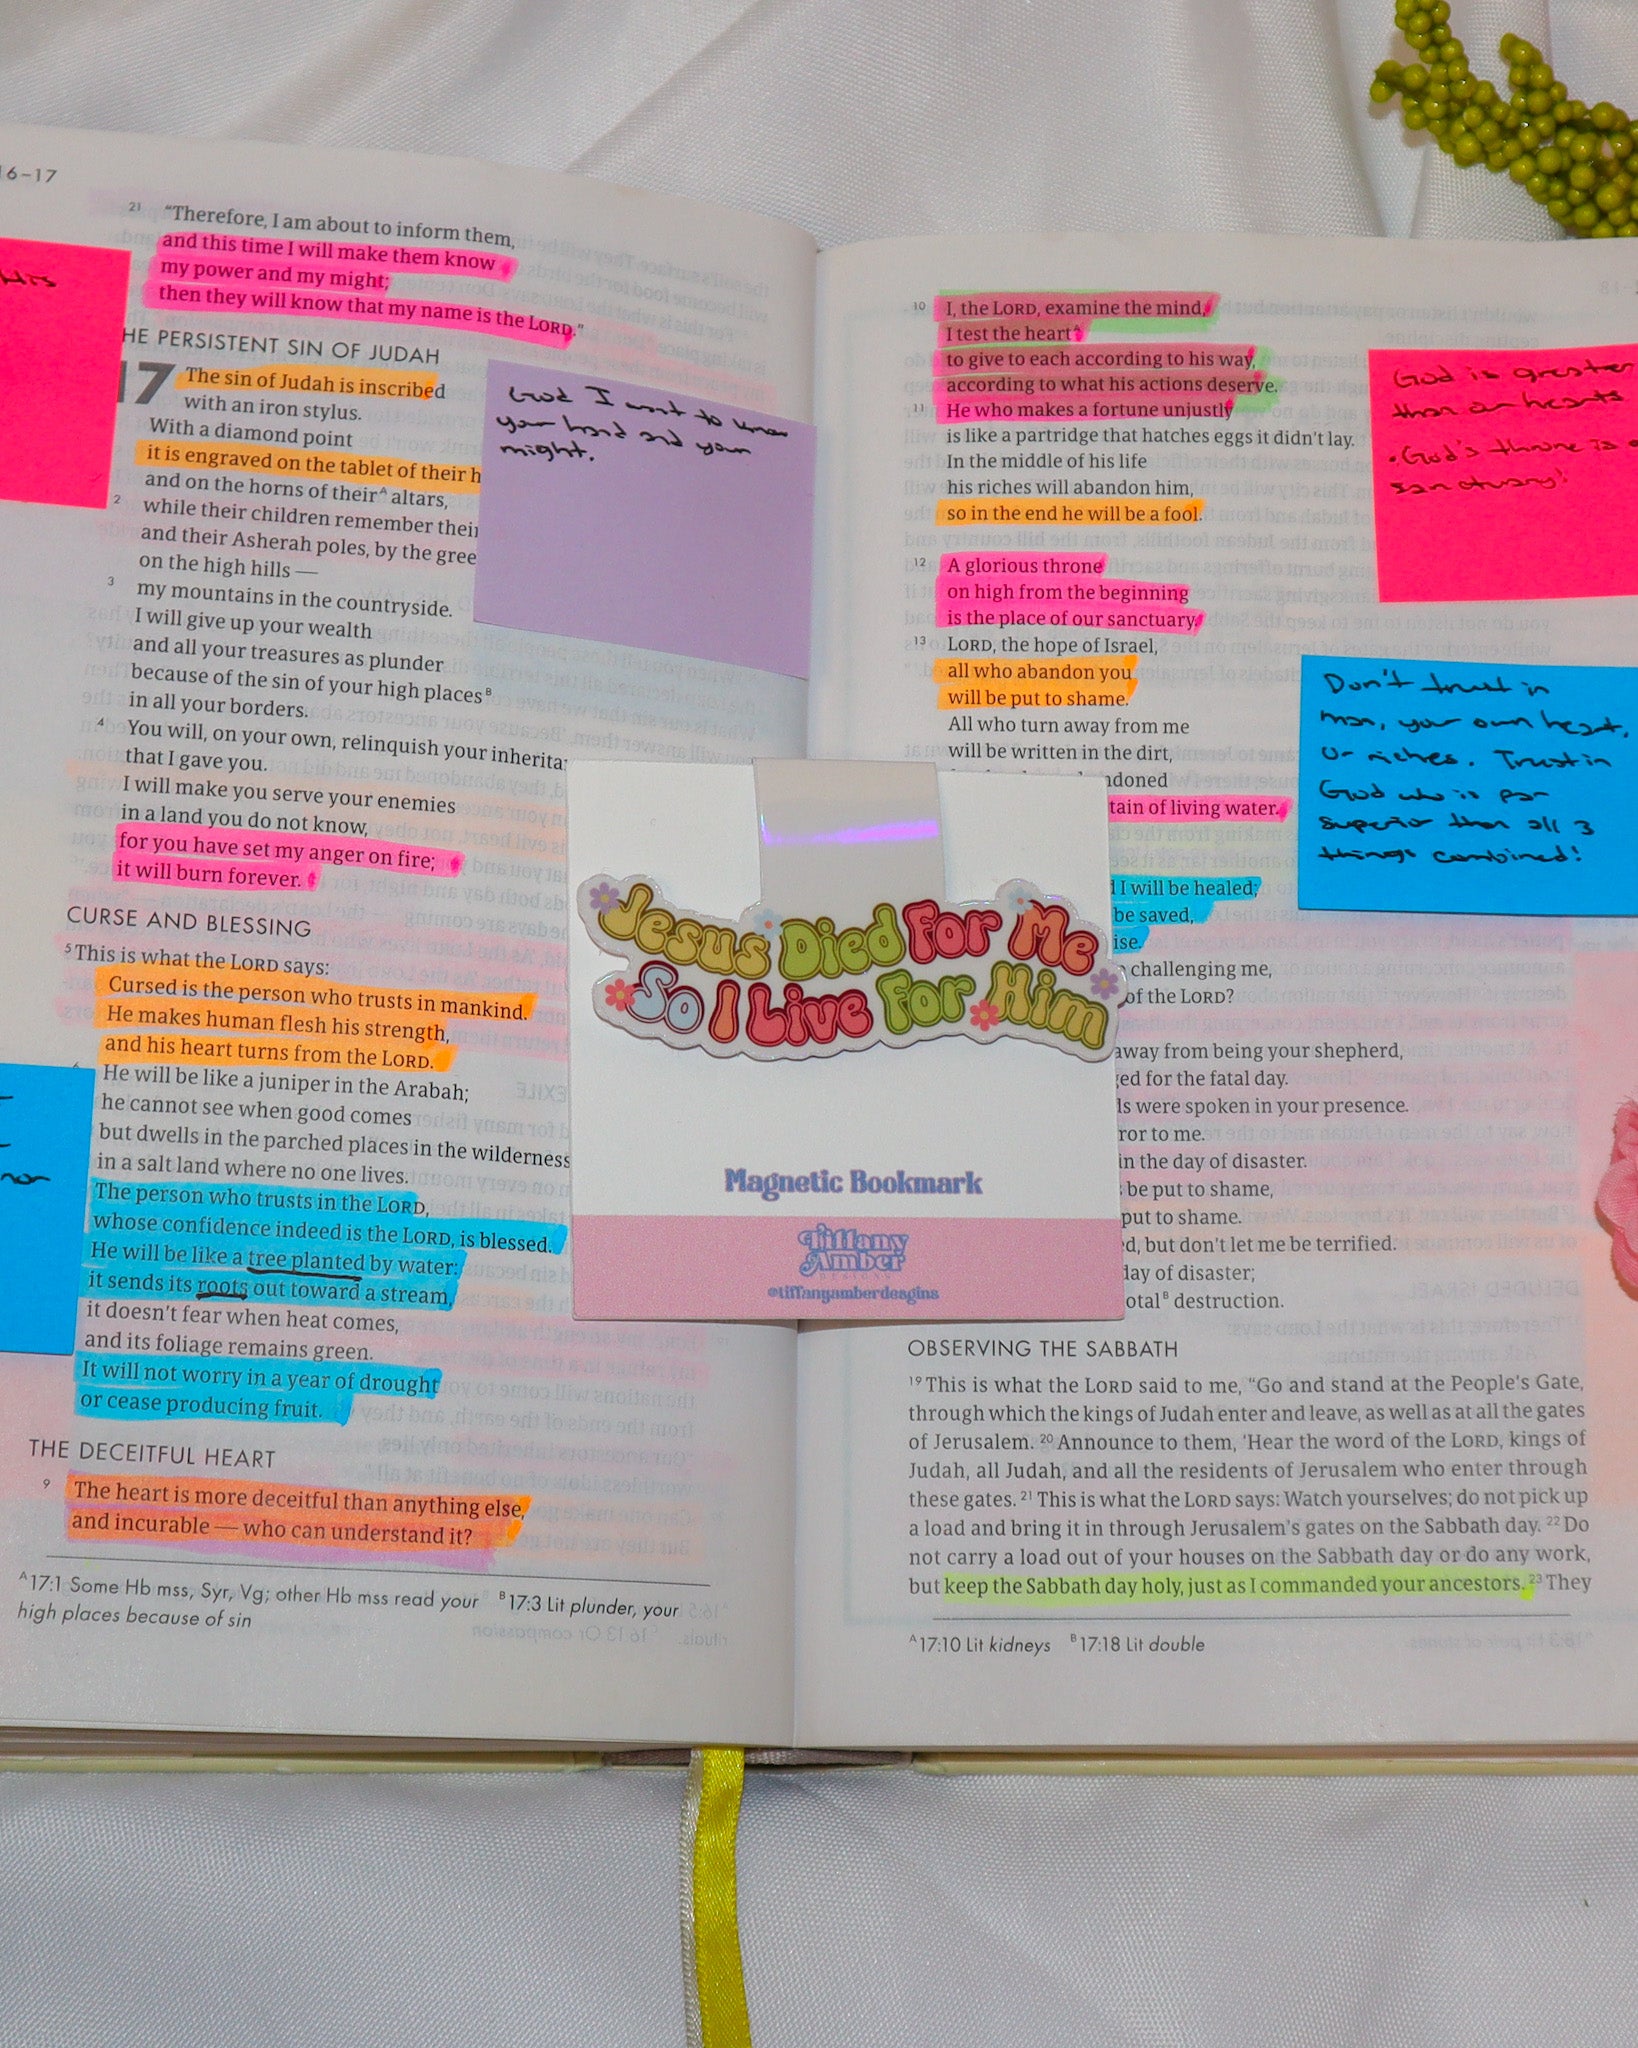 16–17
21 “Therefore, I am about to inform them,
and this time I will make them know
my power and my might;
then they will know that my name is the LORD.”
HE PERSISTENT SIN OF JUDAH
17 The sin of Judah is inscribed
with an iron stylus.
With a diamond point
it is engraved on the tablet of their h
and on the horns of theirᴬ altars,
2 while their children remember their
and their Asherah poles, by the gree
on the high hills —
3 my mountains in the countryside.
I will give up your wealth
and all your treasures as plunder
because of the sin of your high placesᴮ
in all your borders.
4 You will, on your own, relinquish your inherita
that I gave you.
I will make you serve your enemies
in a land you do not know,
for you have set my anger on fire;
it will burn forever.
CURSE AND BLESSING
5 This is what the LORD says:
Cursed is the person who trusts in mankind.
He makes human flesh his strength,
and his heart turns from the LORD.
6 He will be like a juniper in the Arabah;
he cannot see when good comes
but dwells in the parched places in the wilderness
in a salt land where no one lives.
The person who trusts in the LORD,
whose confidence indeed is the LORD, is blessed.
He will be like a tree planted by water:
it sends its roots out toward a stream,
it doesn’t fear when heat comes,
and its foliage remains green.
It will not worry in a year of drought
or cease producing fruit.
THE DECEITFUL HEART
9 The heart is more deceitful than anything else,
and incurable — who can understand it?
ᴬ17:1 Some Hb mss, Syr, Vg; other Hb mss read your ᴮ17:3 Lit plunder, your
high places because of sin
God I want to know
your hand and your
might.
Jesus Died For Me
So I Live For Him
Magnetic Bookmark
Tiffany
Amber
DESIGNS
@tiffanyamberdesgins
10 I, the LORD, examine the mind,
I test the heartᴬ
to give to each according to his way,
according to what his actions deserve.
11 He who makes a fortune unjustly
is like a partridge that hatches eggs it didn’t lay.
In the middle of his life
his riches will abandon him,
so in the end he will be a fool.
12 A glorious throne
on high from the beginning
is the place of our sanctuary.
13 LORD, the hope of Israel,
all who abandon you
will be put to shame.
All who turn away from me
will be written in the dirt,
doned
tain of living water.
I will be healed;
be saved,
ise.
challenging me,
of the LORD?
away from being your shepherd,
ed for the fatal day.
ls were spoken in your presence.
ror to me.
in the day of disaster.
be put to shame,
put to shame.
d, but don’t let me be terrified.
day of disaster;
otalᴮ destruction.
OBSERVING THE SABBATH
19 This is what the LORD said to me, “Go and stand at the People’s Gate,
through which the kings of Judah enter and leave, as well as at all the gates
of Jerusalem. 20 Announce to them, ‘Hear the word of the LORD, kings of
Judah, all Judah, and all the residents of Jerusalem who enter through
these gates. 21 This is what the LORD says: Watch yourselves; do not pick up
a load and bring it in through Jerusalem’s gates on the Sabbath day. 22 Do
not carry a load out of your houses on the Sabbath day or do any work,
but keep the Sabbath day holy, just as I commanded your ancestors. 23 They
ᴬ17:10 Lit kidneys ᴮ17:18 Lit double
God is greater
than our hearts
• God's throne is a
sanctuary!
Don't trust in
man, your own heart,
or riches. Trust in
God who is far
superior than all 3
things combined!